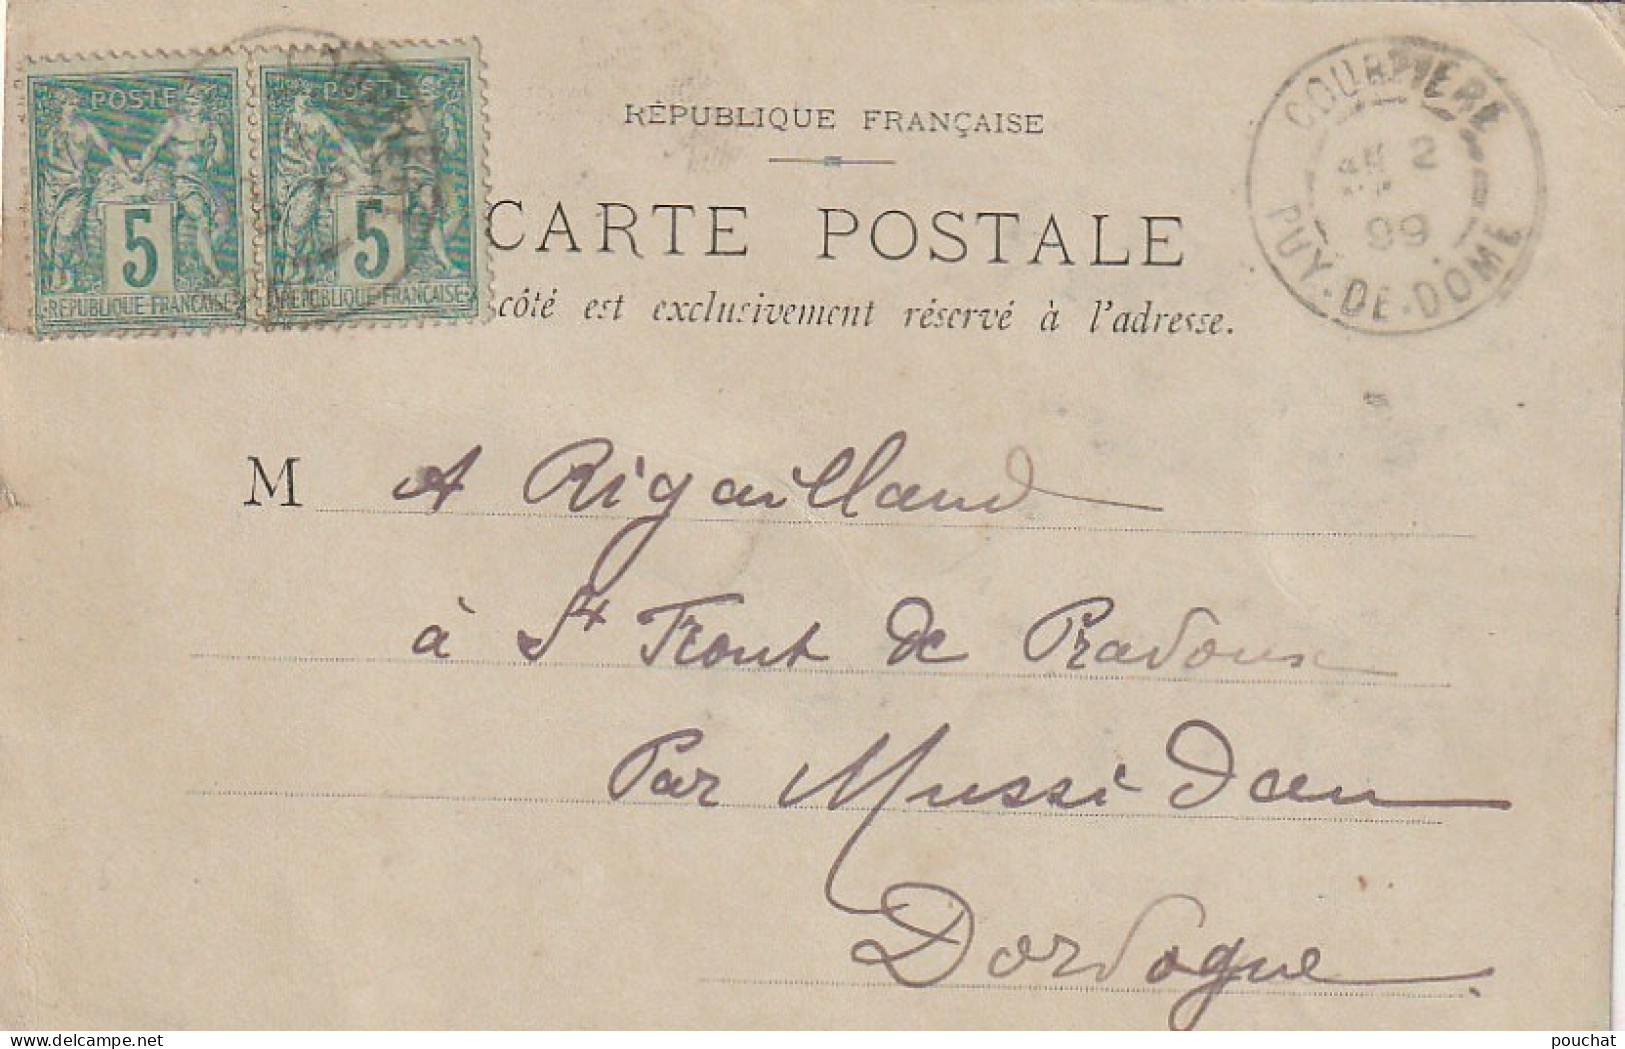 POSTES
5
RÉPUBLIQUE FRANÇAISE
POSTES
5
RÉPUBLIQUE FRANÇAISE
RÉPUBLIQUE FRANÇAISE
CARTE POSTALE
côté est exclusivement réservé à l'adresse.
COURPIERE
2
99
PUY-DE-DOME
M A Rigaillaud
à St Front de Pradoux
Par Mussidan
Dordogne
pouchat